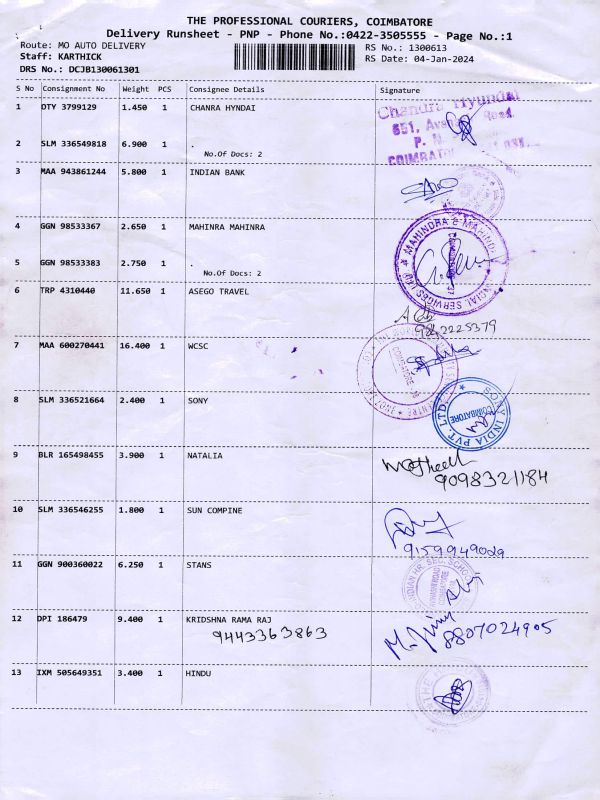 THE PROFESSIONAL COURIERS, COIMBATORE
Delivery Runsheet - PNP - Phone No.:0422-3505555 - Page No.:1
Route: MO AUTO DELIVERY RS No.: 1300613
Staff: KARTHICK RS Date: 04-Jan-2024
DRS No.: DCJB130061301
S No Consignment No Weight PCS Consignee Details Signature
1 DTY 3799129 1.450 1 CHANRA HYNDAI
Chandra Hyundai
COIMBATORE
2 SLM 336549818 6.900 1 .
No.Of Docs: 2
3 MAA 943861244 5.800 1 INDIAN BANK
4 GGN 98533367 2.650 1 MAHINRA MAHINRA
MAHINDRA & MAHINDRA FINANCIAL SERVICES LTD
5 GGN 98533383 2.750 1 .
No.Of Docs: 2
6 TRP 4310440 11.650 1 ASEGO TRAVEL
9842225379
7 MAA 600270441 16.400 1 WCSC
8 SLM 336521664 2.400 1 SONY
SONY INDIA PVT. LTD.
COIMBATORE
9 BLR 165498455 3.900 1 NATALIA
9098321184
10 SLM 336546255 1.800 1 SUN COMPINE
9159949029
11 GGN 900360022 6.250 1 STANS
12 DPI 186479 9.400 1 KRIDSHNA RAMA RAJ
9443363863
8807024905
13 IXM 505649351 3.400 1 HINDU